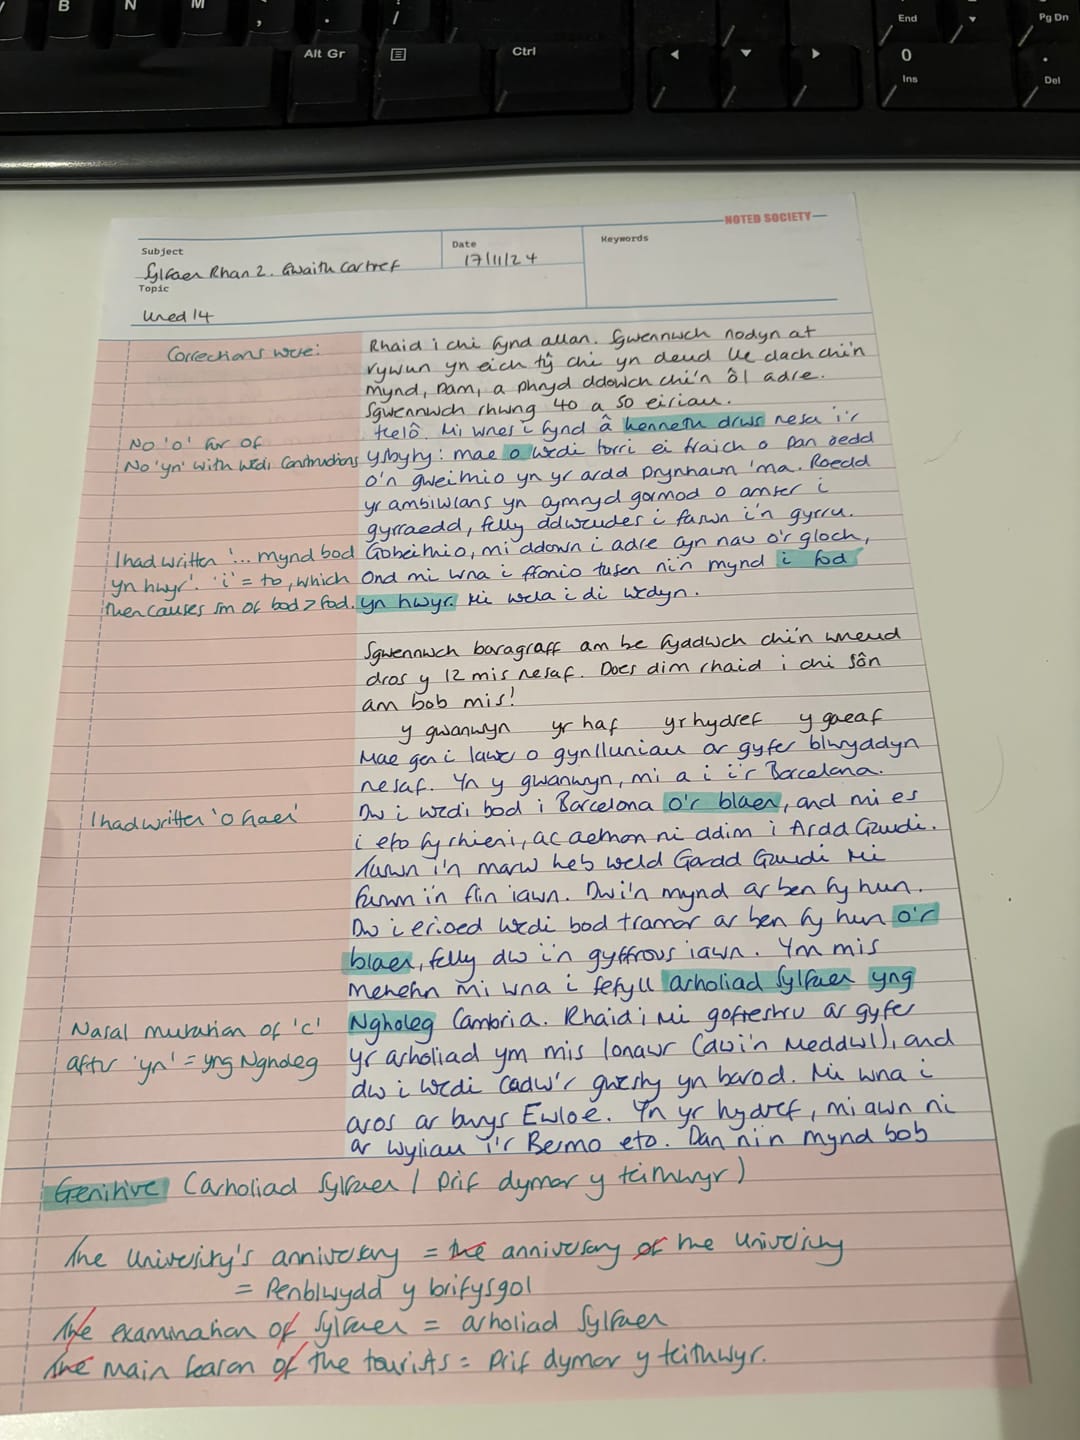 B
N
M
,
.
/
Alt Gr
Ctrl
End
Pg Dn
0
Ins
.
Del
NOTED SOCIETY
Subject
Sylfaen Rhan 2. Gwaith Cartref
Date
17/11/24
Keywords
Topic
Uned 14
Corrections were:
Rhaid i chi fynd allan. Sgwennwch nodyn at
rywun yn eich tŷ chi yn deud lle dach chi'n
mynd, pam, a phryd ddowch chi'n ôl adre.
Sgwennwch rhwng 40 a 50 eiriau.
No 'o' for of
No 'yn' with wedi constructions
Helô. Mi wnes i fynd â Kenneth drws nesa i'r
ysbyty: mae o wedi torri ei fraich o pan oedd
o'n gweithio yn yr ardd prynhawn 'ma. Roedd
yr ambiwlans yn cymryd gormod o amser i
gyrraedd, felly ddwedes i faswn i'n gyrru.
I had written '... mynd bod
yn hwyr'. 'i' = to, which
then causes sm of bod > fod.
Gobeithio, mi ddown i adre cyn naw o'r gloch,
ond mi wna i ffonio tasen ni'n mynd i fod
yn hwyr. Mi wela i di wedyn.
Sgwennwch baragraff am be fyddwch chi'n wneud
dros y 12 mis nesaf. Does dim rhaid i chi sôn
am bob mis!
y gwanwyn yr haf yr hydref y gaeaf
Mae gen i lawer o gynlluniau ar gyfer blwyddyn
nesaf. Yn y gwanwyn, mi a i i'r Barcelona.
I had written 'o flaen'
Dw i wedi bod i Barcelona o'r blaen, and mi es
i efo fy rhieni, ac aethon ni ddim i Ardd Gaudi.
Taswn i'n marw heb weld Gardd Gaudi mi
faswn i'n flin iawn. Dwi'n mynd ar ben fy hun.
Dw i erioed wedi bod tramor ar ben fy hun o'r
blaen, felly dw i'n gyffrous iawn. Ym mis
Mehefin mi wna i sefyll arholiad Sylfaen yng
Nasal mutation of 'c'
after 'yn' = yng Ngholeg
Ngholeg Cambria. Rhaid i mi gofrestru ar gyfer
yr arholiad ym mis Ionawr (dwi'n meddwl), and
dw i wedi cadw'r gwesty yn barod. Mi wna i
aros ar bwys Ewloe. Yn yr hydref, mi awn ni
ar wyliau i'r Bermo eto. Dan ni'n mynd bob
Genitive (arholiad Sylfaen / Prif dymor y teithwyr)
The University's anniversary = the anniversary of the University
= Penblwydd y brifysgol
The examination of Sylfaen = arholiad Sylfaen
The main season of the tourists = Prif dymor y teithwyr.